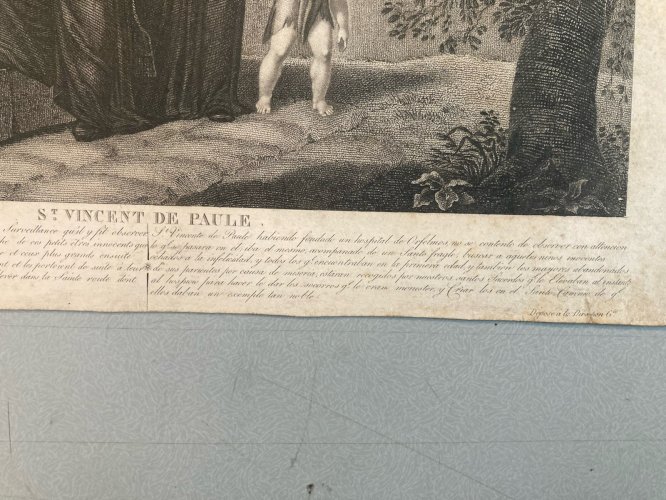 ST. VINCENT DE PAULE
Surveillance qu'il y fit observer
de ces petits êtres innocens que
et ceux plus grands ensuite
et les portent de suite à leur
élever dans la Sainte route dont
Sn. Vincente de Paula habiendo fundado un hospital de Orfelinos, no se contento de observar con attencion
lo que se pasava en el, iba el mesmo acompanado de un Santo frayle, buscar a aquellos ninos inocentes
echados a la infelicidad, y todos los que encuentraban en la primera edad, y tambien los mayores abandonados
de sus parientes por causa de miseria, estavan recogidos por nosotros, santos Sacerdos que lo llevaban al instante
al hospicio para hacer le dar los socorros que le eran menester, y criar los en el Santo Camino de que
elles daban un exemplo tan noble.
Déposé à la Direction Gle.